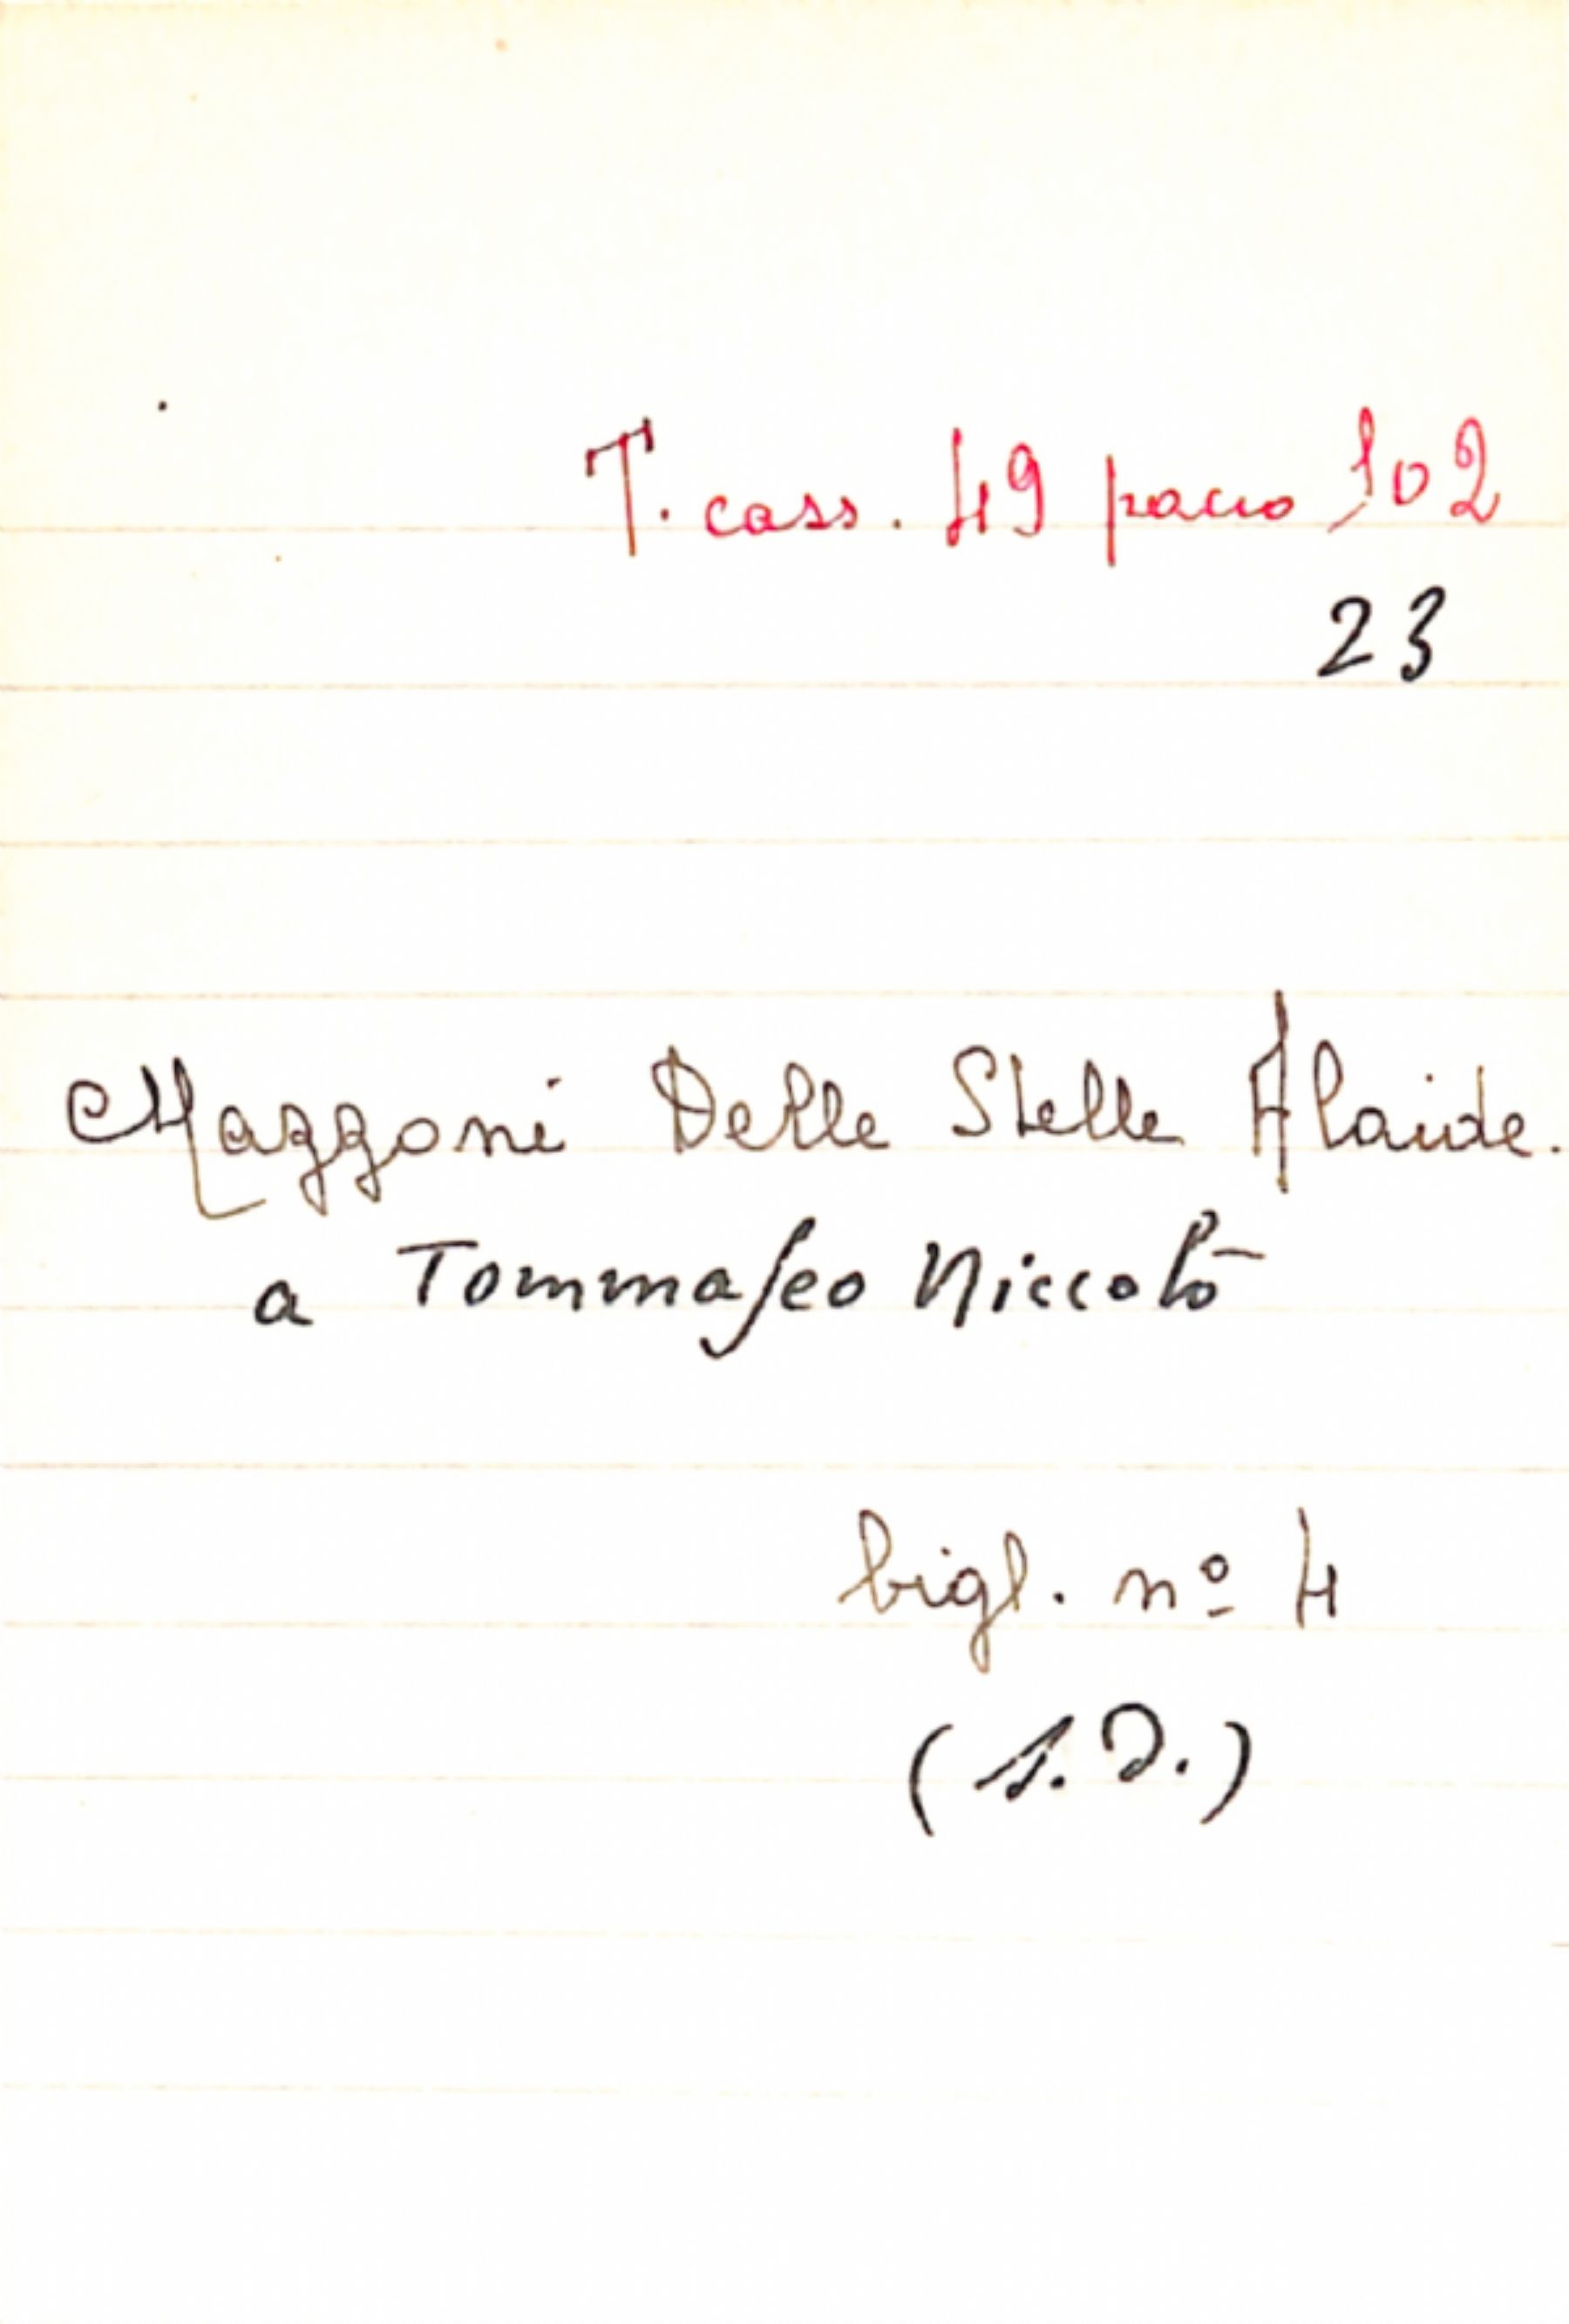 T. cass. 49 pacco 102
23
Mazzoni Delle Stelle Alaide.
a Tommaseo Niccolò
bigl. nº 4
(s.d.)